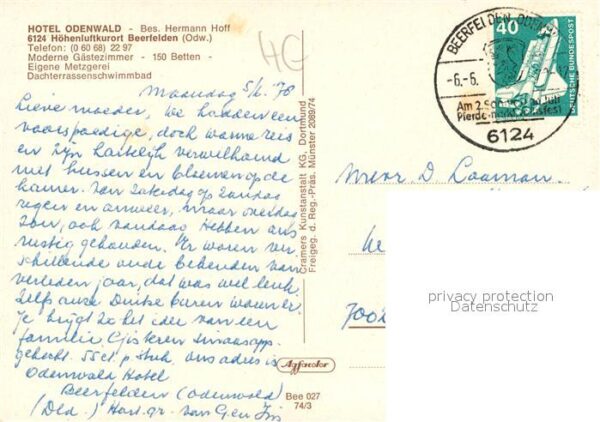 HOTEL ODENWALD - Bes. Hermann Hoff
6124 Höhenluftkurort Beerfelden (Odw.)
Telefon: (0 60 68) 22 97
Moderne Gästezimmer - 150 Betten -
Eigene Metzgerei
Dachterrassenschwimmbad
4G
Maandag 5/6 '78
Lieve moeder, We hadden een
voorspoedige, doch warme reis
en zijn hartelijk verwelkomd
met kussen en bloemen op de
kamer. Van zaterdag op zondag
regen en onweer, maar overdag
zon, ook vandaag. Hebben ons
rustig gehouden. Er waren ver-
schillende oude bekenden van
verleden jaar, dat was wel leuk.
Zelfs onze Duitse buren waren er.
Je krijgt 2x het idee van een
familie
gekocht. 55 ct. p stuk. ons adres is
Odenwald Hotel
Beerfelden (Odenwald)
(Dld.) Hart. gr. van Gen
Cramers Kunstanstalt KG, Dortmund
Freigeg. d. Reg.-Präs. Münster 2089/74
Agfacolor
Bee 027
74/3
BEERFELDEN, ODENW
-6.-6.
Am 2.
Pferdemarkt
6124
40
DEUTSCHE BUNDESPOST
Mevr D. Laaman.
7002
privacy protection
Datenschutz